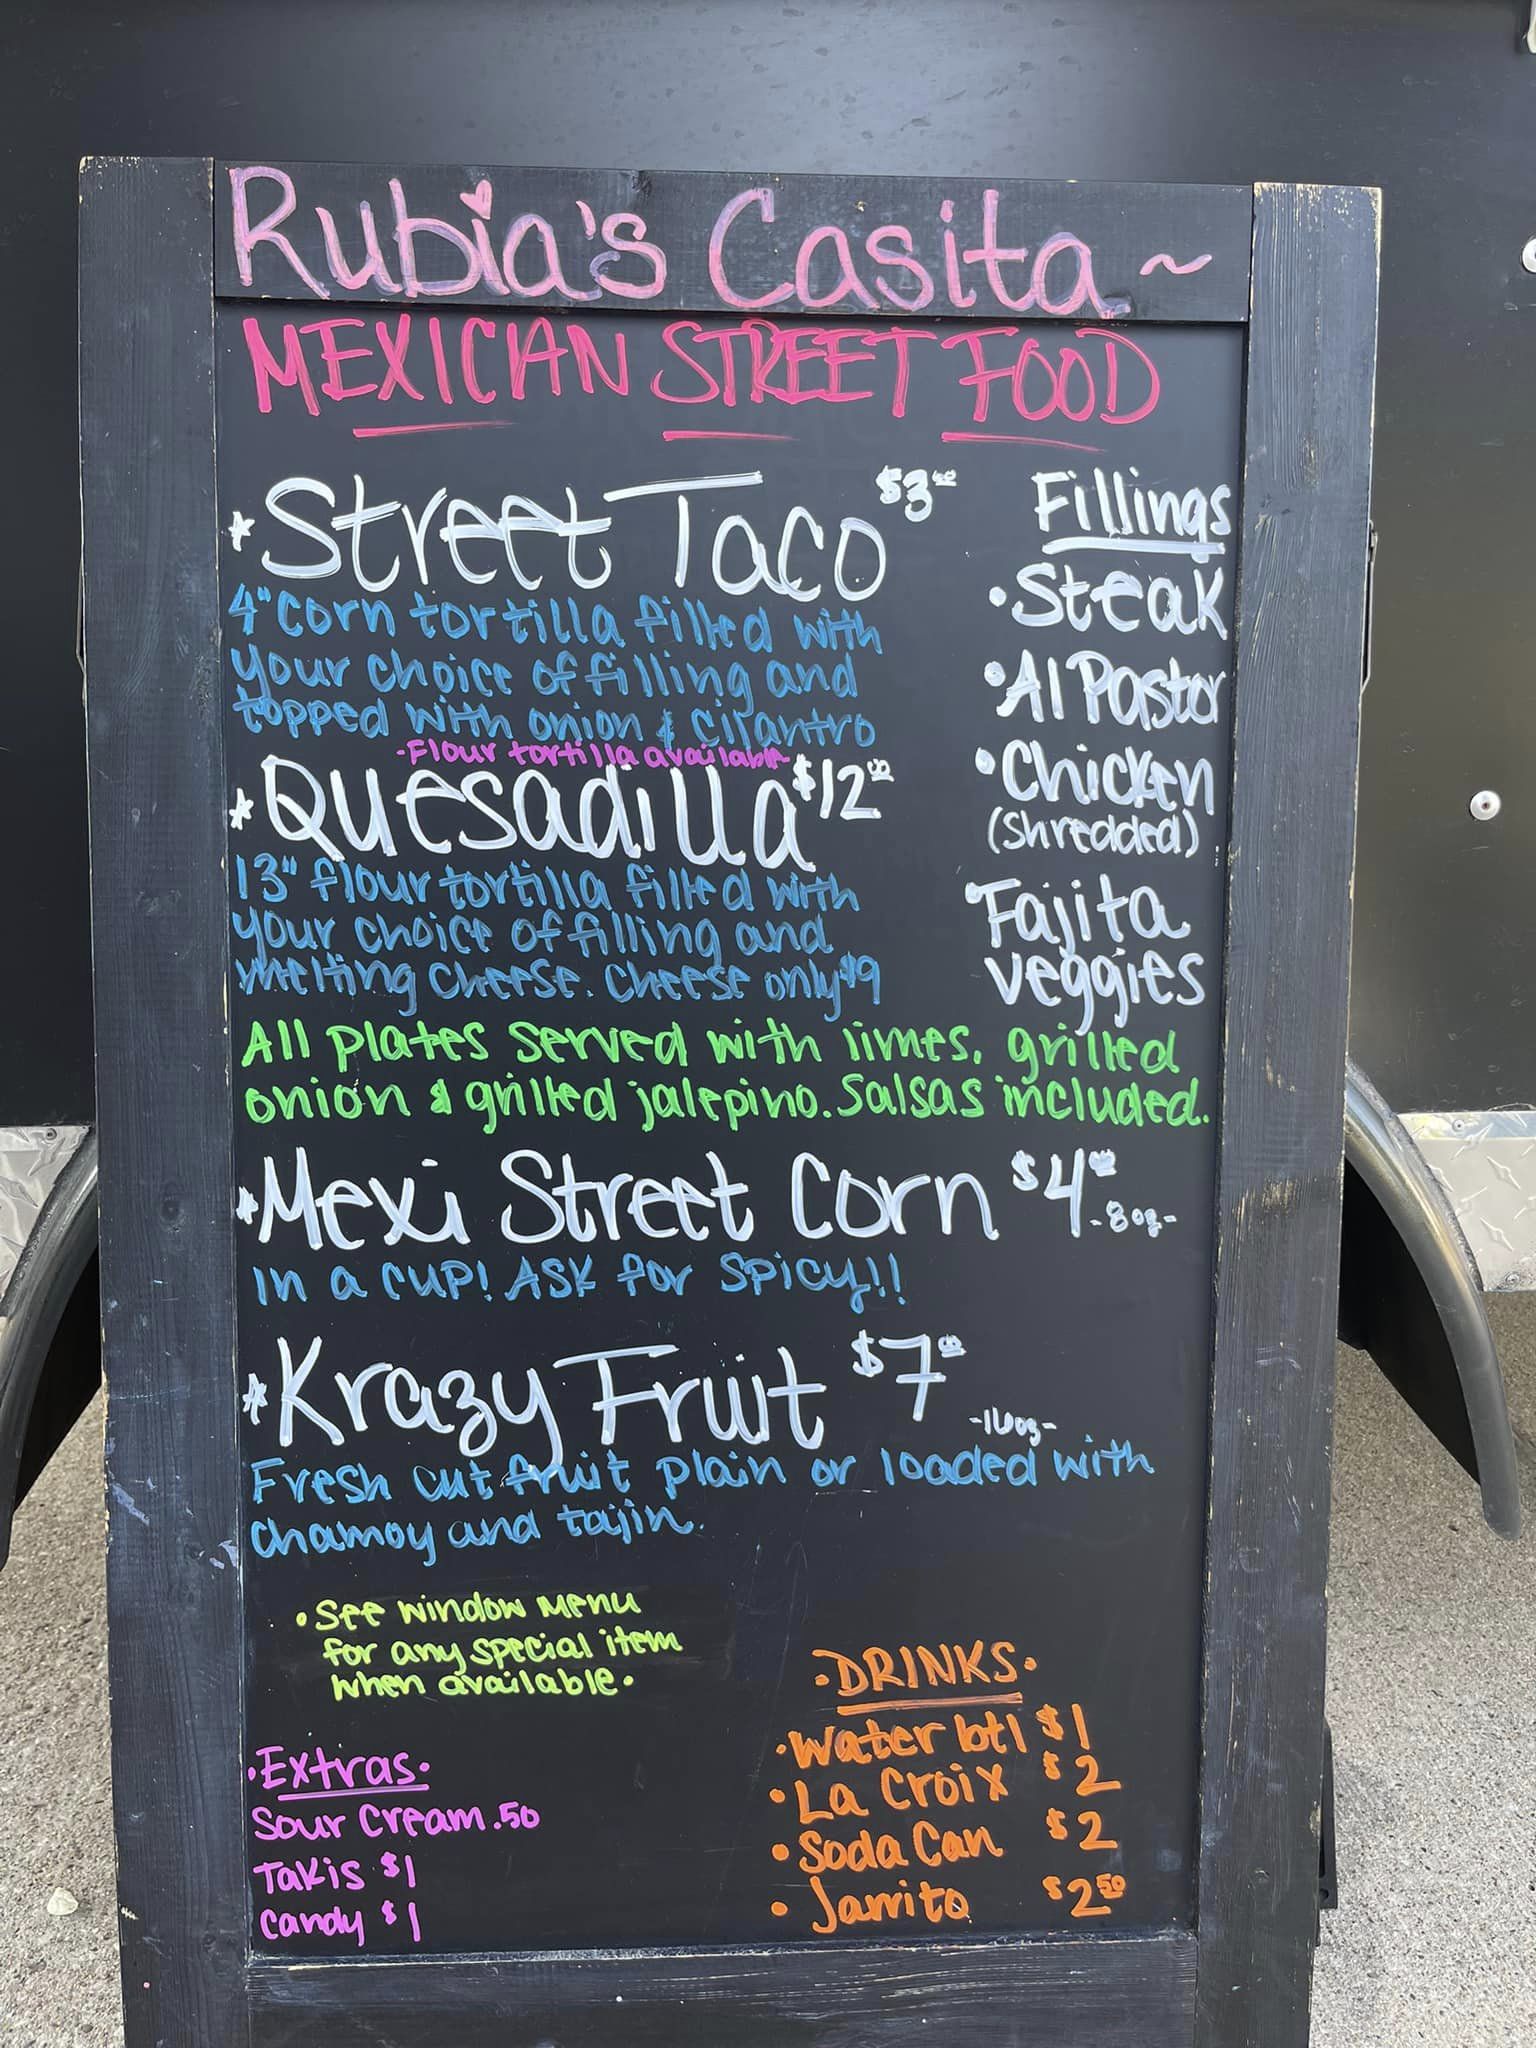 Rubia's Casita ~
MEXICAN STREET FOOD
* Street Taco $3.00
4" corn tortilla filled with
your choice of filling and
topped with onion & cilantro
-Flour tortilla available
* Quesadilla $12.00
13" flour tortilla filled with
your choice of filling and
melting cheese. Cheese only $9
Fillings
• Steak
• Al Pastor
• Chicken
(Shredded)
• Fajita
veggies
All plates served with limes, grilled
onion & grilled jalepino. Salsas included.
* Mexi Street Corn $4.00 -8oz-
In a cup! Ask for spicy!!
* Krazy Fruit $7.00 -16oz-
Fresh cut fruit plain or loaded with
chamoy and tajin.
• See window menu
for any special item
when available •
• Extras •
Sour Cream .50
Takis $1
Candy $1
• DRINKS •
• Water btl $1
• La Croix $2
• Soda Can $2
• Jarrito $2.50